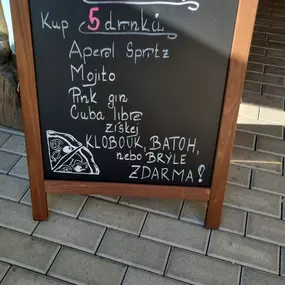 Kup 5 drinků
Aperol Spritz
Mojito
Pink gin
Cuba libre
získej
KLOBOUK, BATOH,
nebo BRÝLE
ZDARMA!